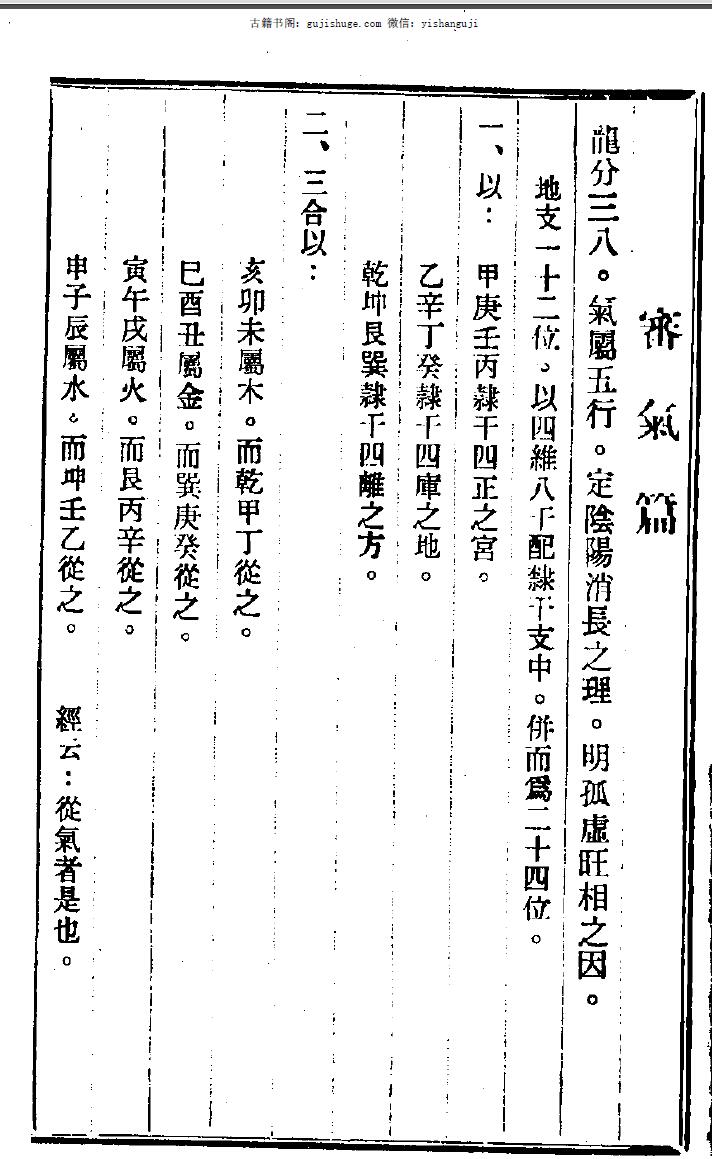 古籍书阁：gujishuge.com 微信：yishanguji
審氣篇
龍分三八。氣屬五行。定陰陽消長之理。明孤虛旺相之因。
地支一十二位。以四維八干配隸干支中。併而爲二十四位。
一、以：甲庚壬丙隸于四正之宮。
乙辛丁癸隸于四庫之地。
乾坤艮巽隸于四離之方。
二、三合以：
亥卯未屬木。而乾甲丁從之。
巳酉丑屬金。而巽庚癸從之。
寅午戌屬火。而艮丙辛從之。
申子辰屬水。而坤壬乙從之。　經云：從氣者是也。